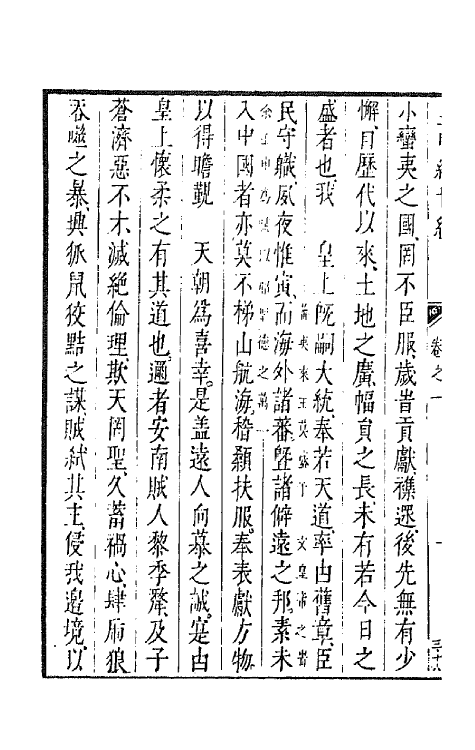 小蠻夷之國罔不臣服歲皆貢獻襍遝後先無有少
懈曰歷代以來土地之廣幅員之長未有若今日之
盛者也我　皇上旣嗣大統奉若天道率由舊章臣
民守職夙夜惟寅而海外諸蕃曁諸僻遠之邦素未
入中國者亦莫不梯山航海稽顙扶服奉表獻方物
以得瞻覲　天朝爲喜幸是盖遠人向慕之誠寔由
皇上懷柔之有其道也邇者安南賊人黎季犛及子
蒼濟惡不才滅絕倫理欺天罔聖久蓄禍心肆廁狼
吞噬之暴興狐鼠狡黠之謀賊弒其主侵我邊境以
卷之一